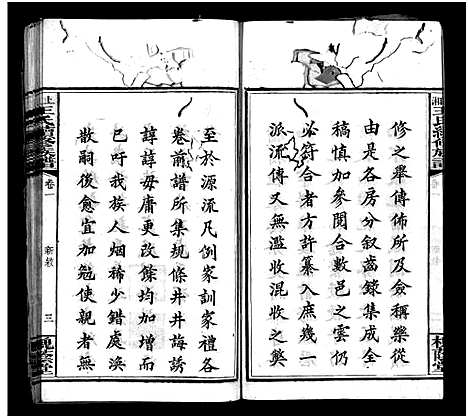 修之舉傳佈所及僉稱樂從
由是各房分叙齒錄集成全
稿慎加參閱合數邑之雲仍
必符合者方許纂入庶幾一
傳又無濫收混收之獘
至於源流凡例家訓家禮各
卷前譜所集規條井井誨誘
諄諄毋庸更改條均加增而
已吁我族人烟稀少錯處渙
散嗣後愈宜加勉使親者無
王氏續修族譜
卷一
新敘
三